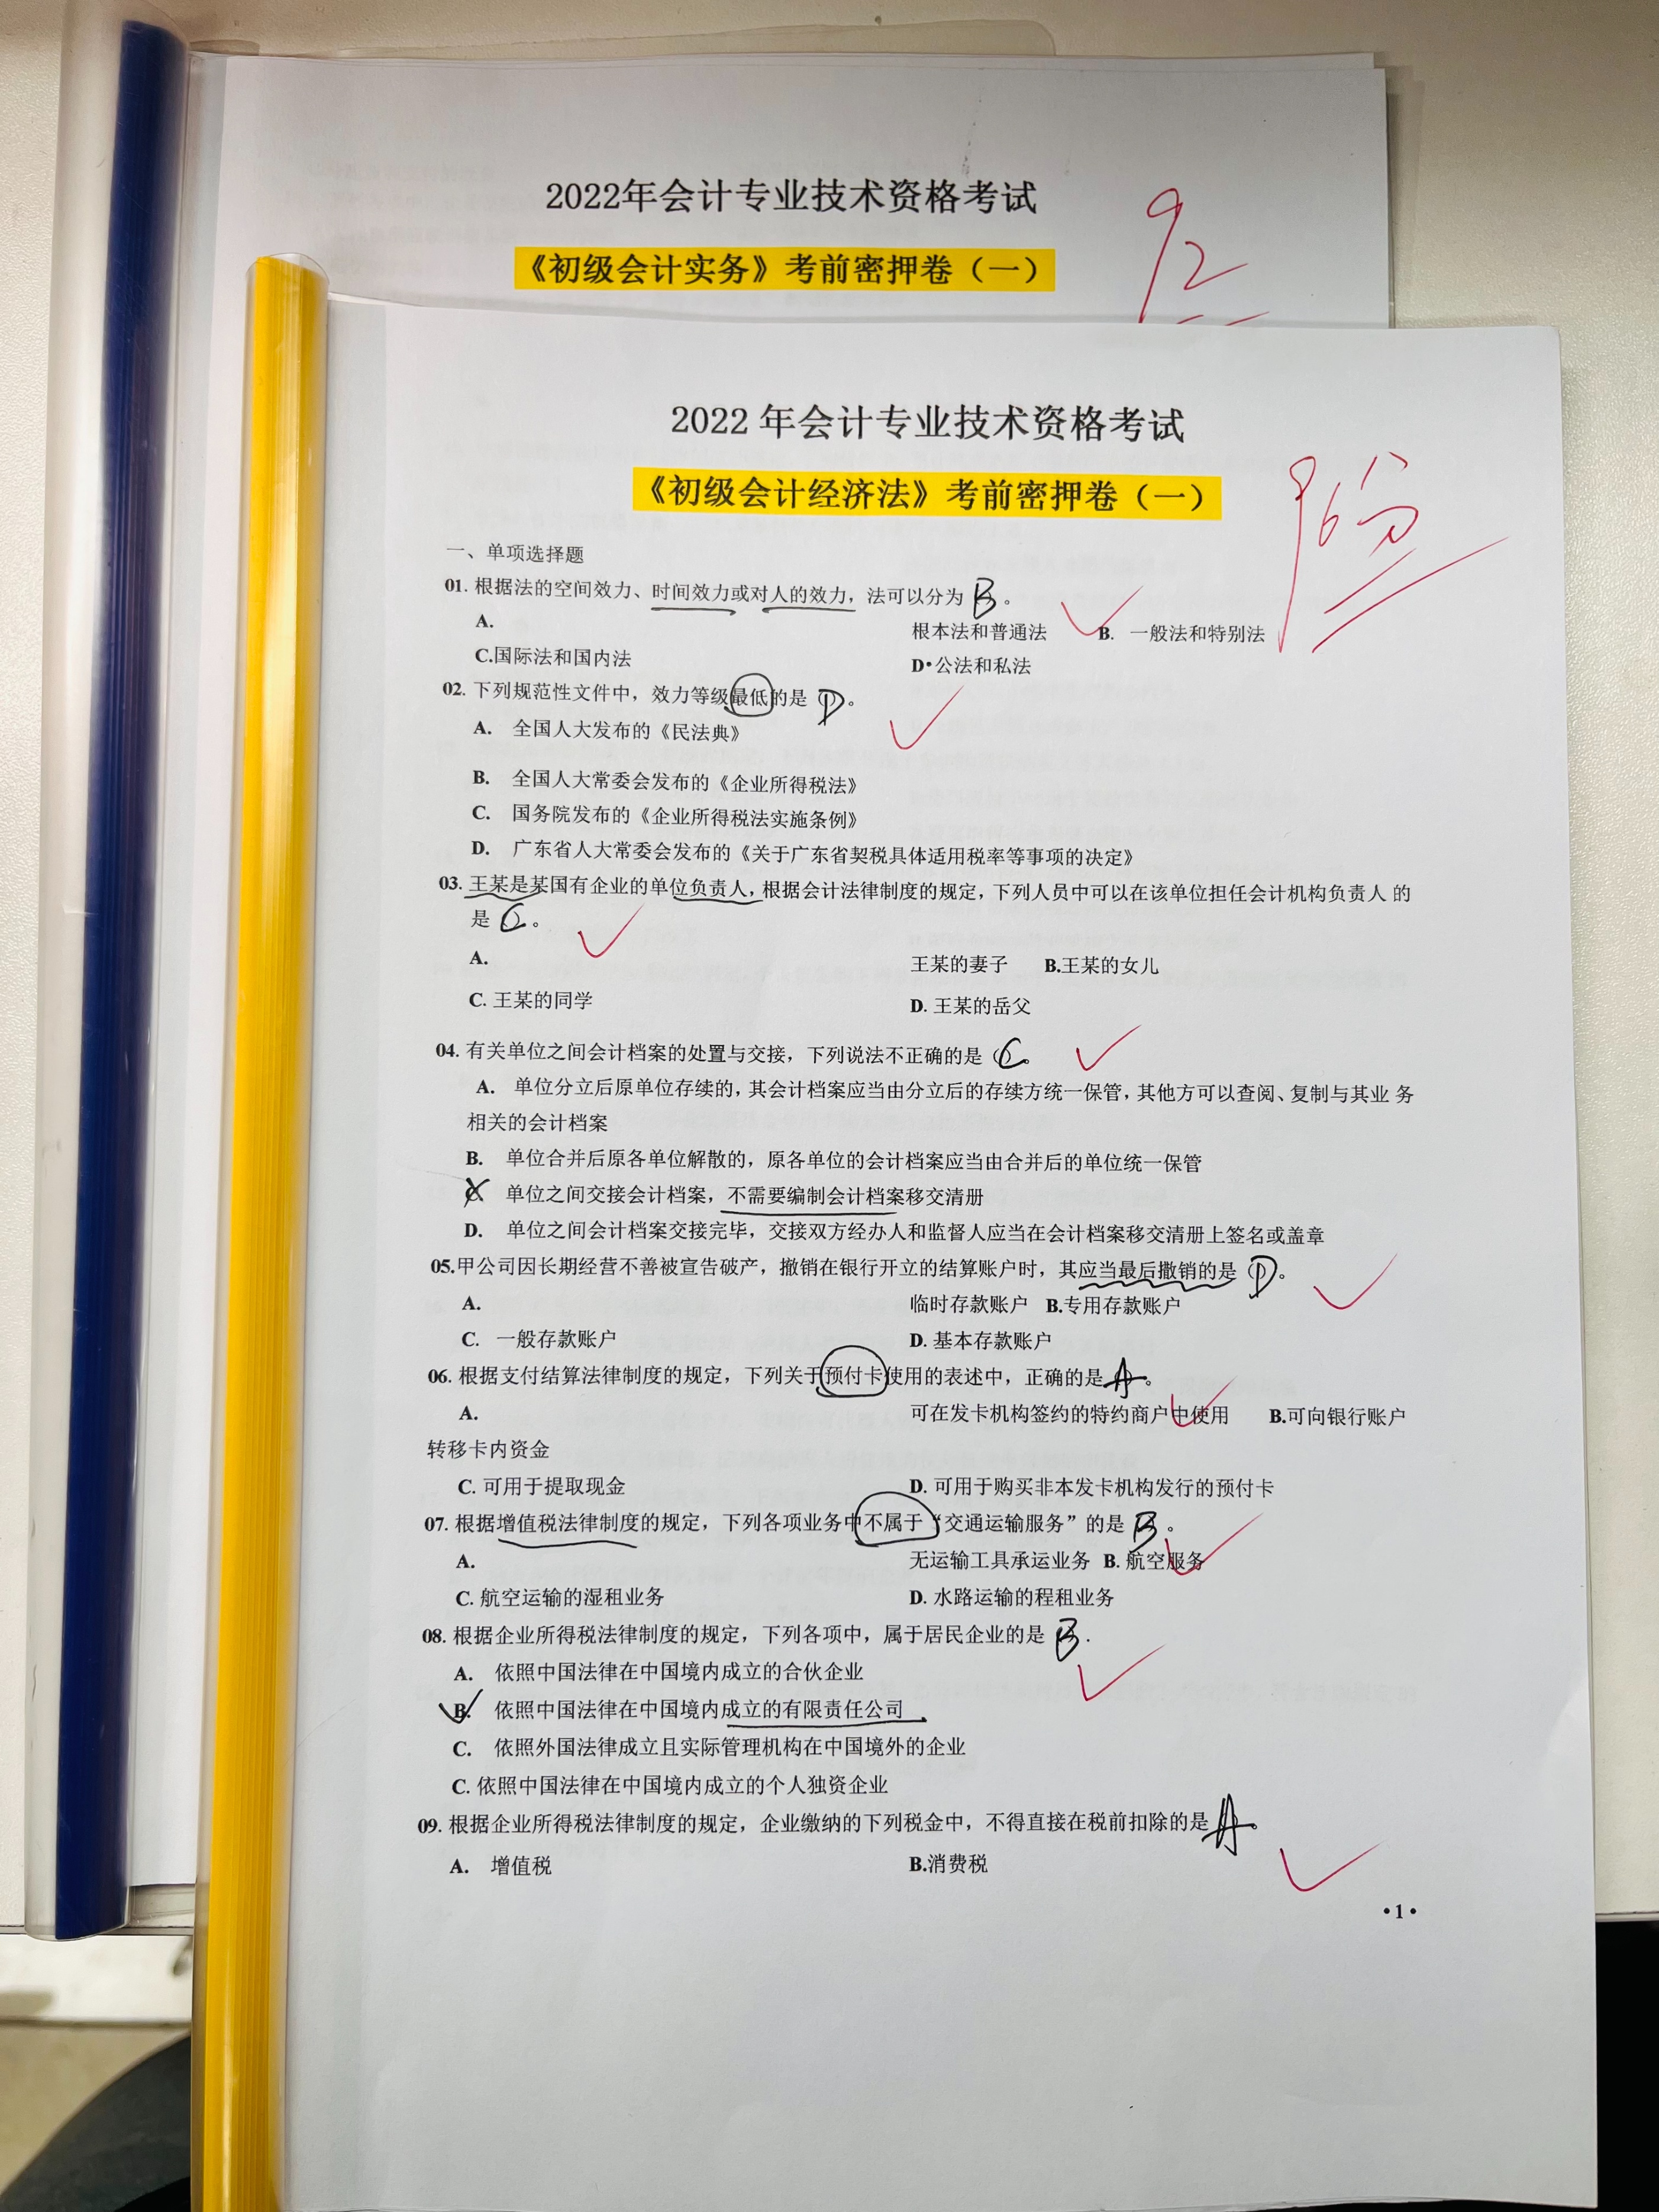 2022年会计专业技术资格考试
《初级会计实务》考前密押卷（一）
92
2022 年会计专业技术资格考试
《初级会计经济法》考前密押卷（一）
96分
一、单项选择题
01. 根据法的空间效力、时间效力或对人的效力，法可以分为 B 。
A. 根本法和普通法 B. 一般法和特别法
C.国际法和国内法 D•公法和私法
02. 下列规范性文件中，效力等级最低的是 D 。
A. 全国人大发布的《民法典》
B. 全国人大常委会发布的《企业所得税法》
C. 国务院发布的《企业所得税法实施条例》
D. 广东省人大常委会发布的《关于广东省契税具体适用税率等事项的决定》
03. 王某是某国有企业的单位负责人，根据会计法律制度的规定，下列人员中可以在该单位担任会计机构负责人 的
是 C 。
A. 王某的妻子 B.王某的女儿
C. 王某的同学 D. 王某的岳父
04. 有关单位之间会计档案的处置与交接，下列说法不正确的是 C 。
A. 单位分立后原单位存续的，其会计档案应当由分立后的存续方统一保管，其他方可以查阅、复制与其业 务
相关的会计档案
B. 单位合并后原各单位解散的，原各单位的会计档案应当由合并后的单位统一保管
C. 单位之间交接会计档案，不需要编制会计档案移交清册
D. 单位之间会计档案交接完毕，交接双方经办人和监督人应当在会计档案移交清册上签名或盖章
05.甲公司因长期经营不善被宣告破产，撤销在银行开立的结算账户时，其应当最后撤销的是 D 。
A. 临时存款账户 B.专用存款账户
C. 一般存款账户 D. 基本存款账户
06. 根据支付结算法律制度的规定，下列关于预付卡使用的表述中，正确的是 A 。
A. 可在发卡机构签约的特约商户中使用 B.可向银行账户
转移卡内资金
C. 可用于提取现金 D. 可用于购买非本发卡机构发行的预付卡
07. 根据增值税法律制度的规定，下列各项业务中不属于“交通运输服务”的是 B 。
A. 无运输工具承运业务 B. 航空服务
C. 航空运输的湿租业务 D. 水路运输的程租业务
08. 根据企业所得税法律制度的规定，下列各项中，属于居民企业的是 B .
A. 依照中国法律在中国境内成立的合伙企业
B. 依照中国法律在中国境内成立的有限责任公司
C. 依照外国法律成立且实际管理机构在中国境外的企业
C. 依照中国法律在中国境内成立的个人独资企业
09. 根据企业所得税法律制度的规定，企业缴纳的下列税金中，不得直接在税前扣除的是 A 。
A. 增值税 B.消费税
•1•